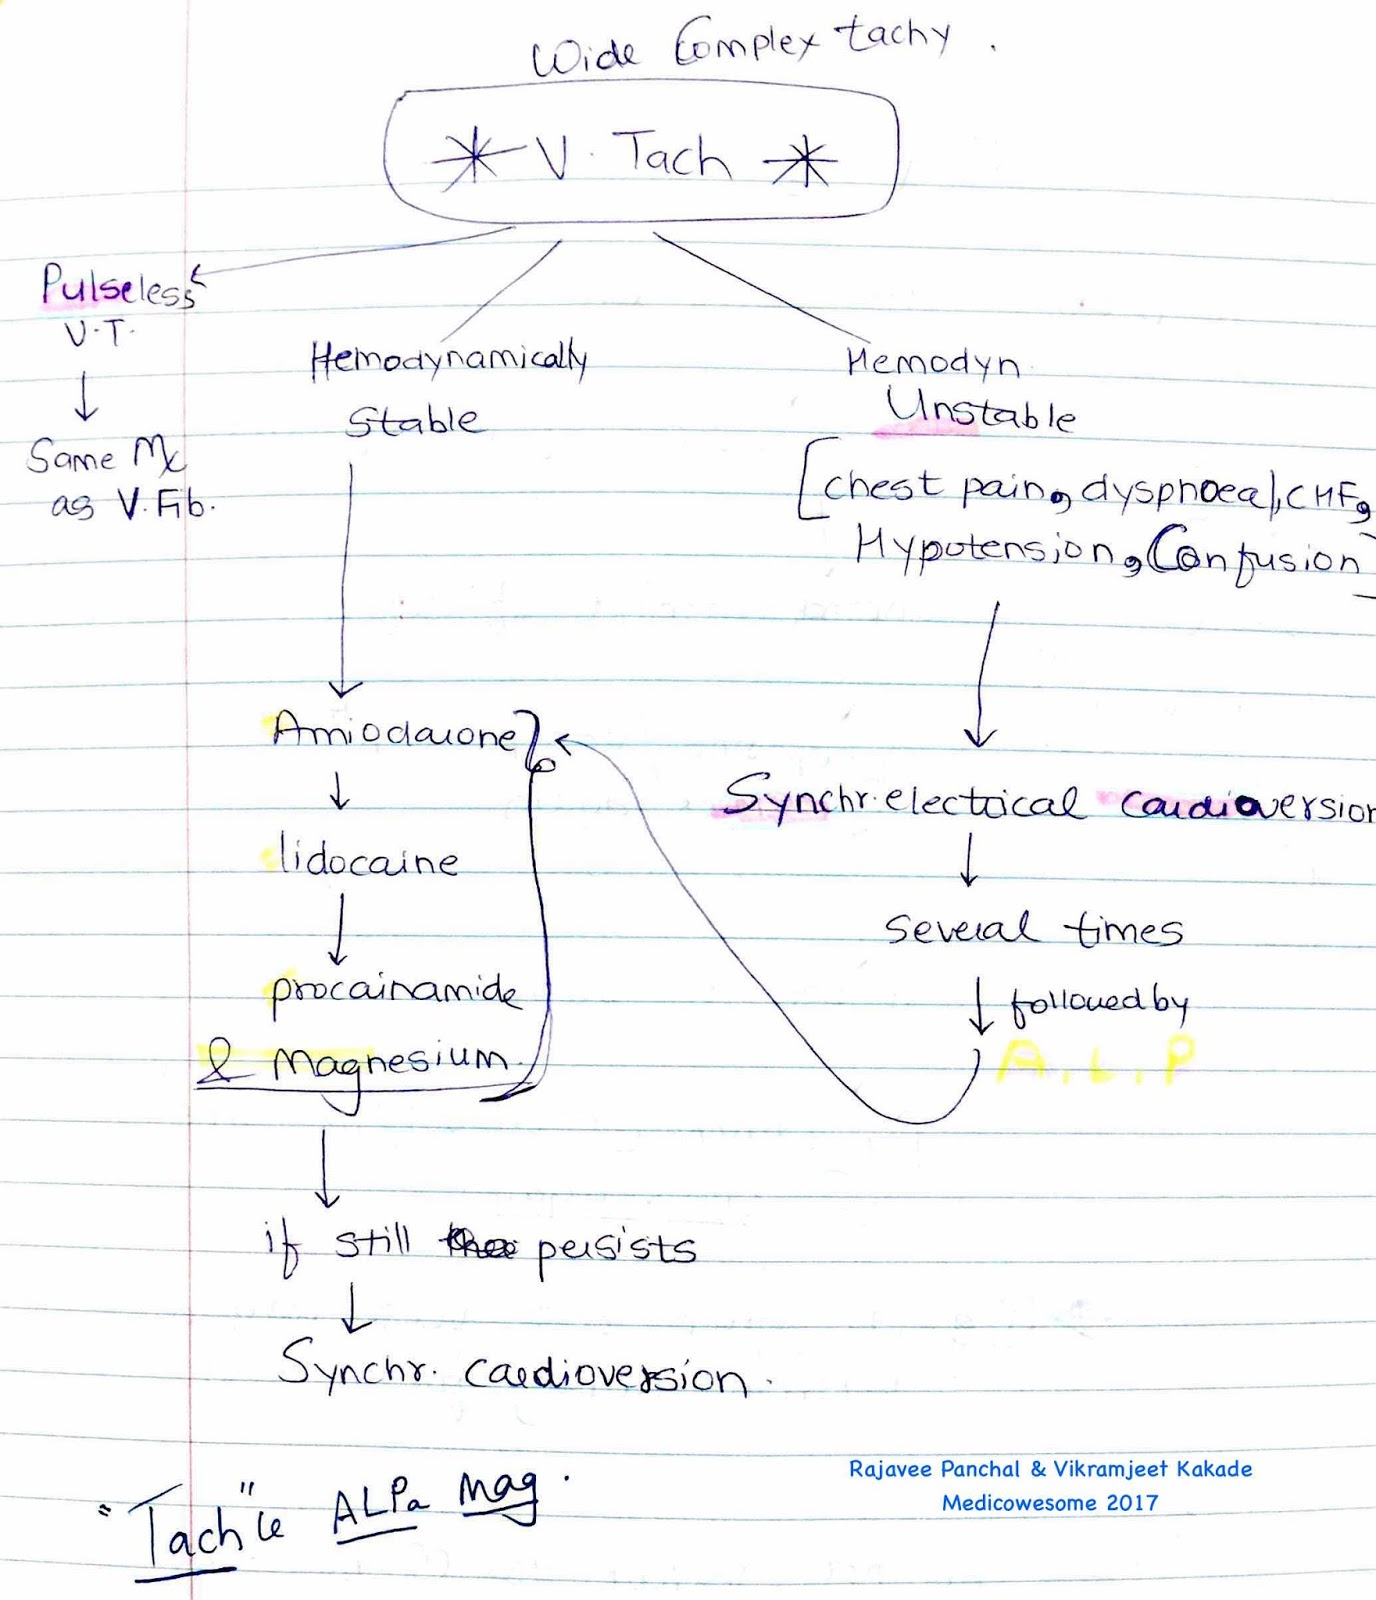 Wide Complex tachy.
V. Tach
Pulseless
V.T.
↓
Same Mx
as V. Fib.
Hemodynamically
Stable
Hemodyn
Unstable
[chest pain, dyspnoea, CHF,
Hypotension, Confusion]
Amiodarone
↓
lidocaine
↓
procainamide
& Magnesium.
↓
if still persists
↓
Synchr. cardioversion.
Synchr. electrical cardioversion
↓
several times
↓ followed by
A. L. P
"Tach"le ALPa Mag.
Rajavee Panchal & Vikramjeet Kakade
Medicowesome 2017